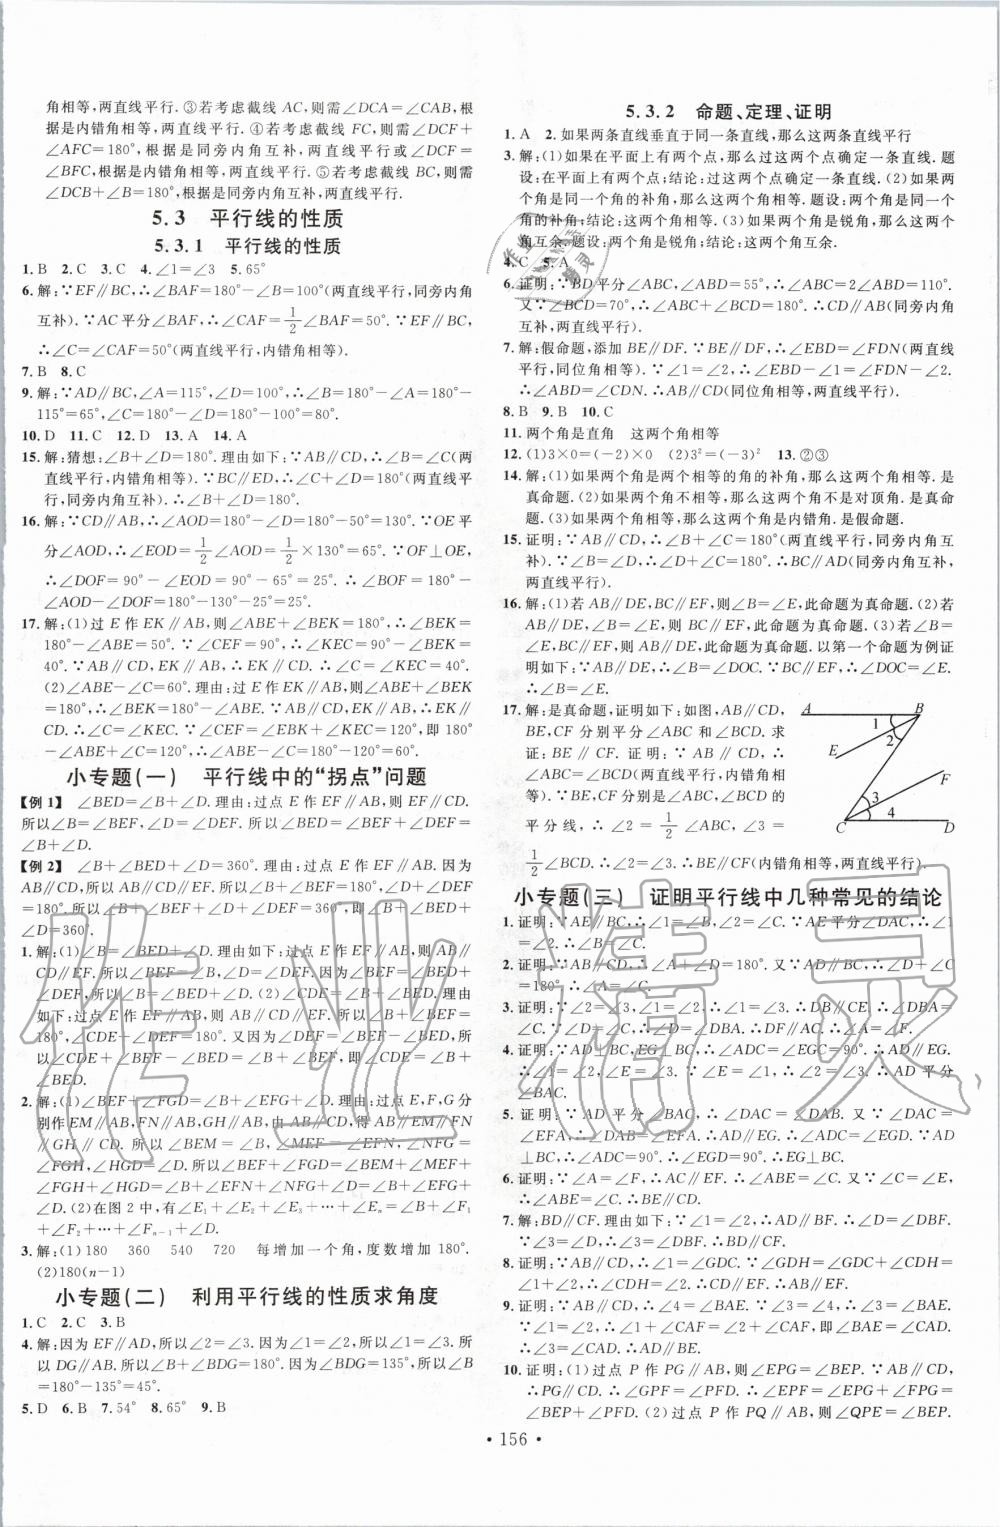 角相等,两直线平行. ③若考虑截线 AC,则需∠DCA=∠CAB,根
据是内错角相等,两直线平行. ④若考虑截线 FC,则需∠DCF+
∠AFC=180°,根据是同旁内角互补,两直线平行或∠DCF=
∠BFC,根据是内错角相等,两直线平行. ⑤若考虑截线 BC,则需
∠DCB+∠B=180°,根据是同旁内角互补,两直线平行.
5.3 平行线的性质
5.3.1 平行线的性质
1. B 2. C 3. C 4. ∠1=∠3 5. 65°
6. 解:∵EF∥BC,∴∠BAF=180°-∠B=100°(两直线平行,同旁内角
互补). ∵AC平分∠BAF,∴∠CAF=1/2∠BAF=50°. ∵EF∥BC,
∴∠C=∠CAF=50°(两直线平行,内错角相等).
7. B 8. C
9. 解:∵AD∥BC,∠A=115°,∠D=100°,∴∠B=180°-∠A=180°-
115°=65°,∠C=180°-∠D=180°-100°=80°.
10. D 11. C 12. D 13. A 14. A
15. 解:猜想:∠B+∠D=180°. 理由如下:∵AB∥CD,∴∠B=∠C(两
直线平行,内错角相等). ∵BC∥ED,∴∠C+∠D=180°(两直线平
行,同旁内角互补). ∴∠B+∠D=180°.
16. 解:∵CD∥AB,∴∠AOD=180°-∠D=180°-50°=130°. ∵OE平
分∠AOD,∴∠EOD=1/2∠AOD=1/2×130°=65°. ∵OF⊥OE,
∴∠DOF=90°-∠EOD=90°-65°=25°. ∴∠BOF=180°-
∠AOD-∠DOF=180°-130°-25°=25°.
17. 解:(1)过 E 作 EK∥AB,则∠ABE+∠BEK=180°,∴∠BEK=
180°-∠ABE=50°. ∵∠CEF=90°,∴∠KEC=90°-∠BEK=
40°. ∵AB∥CD,EK∥AB,∴EK∥CD. ∴∠C=∠KEC=40°.
(2)∠ABE-∠C=60°. 理由:过 E 作 EK∥AB,则∠ABE+∠BEK
=180°,∴∠BEK=180°-∠ABE. ∵AB∥CD,EK∥AB,∴EK∥
CD. ∴∠C=∠KEC. ∵∠CEF=∠EBK+∠KEC=120°,即 180°
-∠ABE+∠C=120°,∴∠ABE-∠C=180°-120°=60°.
小专题(一) 平行线中的“拐点”问题
【例 1】 ∠BED=∠B+∠D. 理由:过点 E 作 EF∥AB,则 EF∥CD.
所以∠B=∠BEF,∠D=∠DEF. 所以∠BED=∠BEF+∠DEF=
∠B+∠D.
【例 2】 ∠B+∠BED+∠D=360°. 理由:过点 E 作 EF∥AB. 因为
AB∥CD,所以 AB∥CD∥EF. 所以∠B+∠BEF=180°,∠D+
∠DEF=180°. 所以∠B+∠BEF+∠DEF+∠D=360°,即∠B+∠BED+
∠D=360°.
1. 解:(1)∠B=∠BED+∠D. 理由如下:过点 E 作 EF∥AB,则AB∥
CD∥EF. 所以∠B=∠BEF,∠D=∠DEF. 因为∠BEF=∠BED+
∠DEF,所以∠B=∠BED+∠D. (2)∠CDE=∠B+∠BED. 理由
如下:过点 E 作 EF∥AB,则 AB∥CD∥EF. 所以∠B+∠BEF=
180°,∠CDE+∠DEF=180°. 又因为∠DEF=∠BEF-
∠BED,所以∠CDE+∠BEF-∠BED=∠B+∠BEF,即∠CDE=∠B+
∠BED.
2. 解:(1)∠BEF+∠FGD=∠B+∠EFG+∠D. 理由:过点E,F,G分
别作EM∥AB,FN∥AB,GH∥AB,由 AB∥CD,得 AB∥EM∥FN
∥GH∥CD. ∴∠B=∠BEM,∠MEF=∠EFN,∠NFG=
∠FGH,∠HGD=∠D. ∴∠BEF+∠FGD=∠BEM+∠MEF+
∠FGH+∠HGD=∠B+∠EFN+∠NFG+∠D=∠B+∠EFG+
∠D. (2)在图 2 中,有∠E₁+∠E₂+∠E₃+…+∠Eₙ=∠B+∠F₁
+∠F₂+…+∠Fₙ₋₁+∠D.
3. 解:(1)180 360 540 720 每增加一个角,度数增加 180°.
(2)180(n-1)
小专题(二) 利用平行线的性质求角度
1. C 2. C 3. B
4. 解:因为 EF∥AD,所以∠2=∠3. 又因为∠1=∠2,所以∠1=∠3. 所
以 DG∥AB. 所以∠B+∠BDG=180°. 因为∠BDG=135°,所以∠B
=180°-135°=45°.
5. D 6. B 7. 54° 8. 65° 9. B
5.3.2 命题、定理、证明
1. A 2. 如果两条直线垂直于同一条直线,那么这两条直线平行
3. 解:(1)如果在平面上有两个点,那么过这两个点确定一条直线. 题
设:在平面上有两个点;结论:过这两个点确定一条直线. (2)如果
两个角是同一个角的补角,那么这两个角相等. 题设:两个角是同一
个角的补角;结论:这两个角相等. (3)如果两个角是锐角,那么这两
个角互余. 题设:两个角是锐角;结论:这两个角互余.
4. C 5. A
6. 证明:∵BD平分∠ABC,∠ABD=55°,∴∠ABC=2∠ABD=110°.
又∵∠BCD=70°,∴∠ABC+∠BCD=180°. ∴CD∥AB(同旁内角
互补,两直线平行).
7. 解:假命题,添加 BE∥DF. ∵BE∥DF,∴∠EBD=∠FDN(两直线
平行,同位角相等). ∵∠1=∠2,∴∠EBD-∠1=∠FDN-∠2.
∴∠ABD=∠CDN. ∴AB∥CD(同位角相等,两直线平行).
8. B 9. B 10. C
11. 两个角是直角 这两个角相等
12. (1)3×0=(-2)×0 (2)3²=(-3)² 13. ②③
14. 解:(1)如果两个角是两个相等的角的补角,那么这两个角相等. 是
真命题. (2)如果两个角不相等,那么这两个角不是对顶角. 是真命
题. (3)如果两个角相等,那么这两个角是内错角. 是假命题.
15. 证明:∵AB∥CD,∴∠B+∠C=180°(两直线平行,同旁内角互
补). ∵∠B=∠D,∴∠D+∠C=180°. ∴BC∥AD(同旁内角互补,
两直线平行).
16. 解:(1)若 AB∥DE,BC∥EF,则∠B=∠E,此命题为真命题. (2)若
AB∥DE,∠B=∠E,则 BC∥EF,此命题为真命题. (3)若∠B=
∠E,BC∥EF,则 AB∥DE,此命题为真命题. 以第一个命题为例证
明如下:∵AB∥DE,∴∠B=∠DOC. ∵BC∥EF,∴∠DOC=∠E.
∴∠B=∠E.
17. 解:是真命题,证明如下:如图,AB∥CD,
BE,CF 分别平分∠ABC和∠BCD. 求
证:BE∥CF. 证明:∵AB∥CD,
∴∠ABC=∠BCD(两直线平行,内错角相
等). ∵BE,CF 分别是∠ABC,∠BCD的
平分线,∴∠2=1/2∠ABC,∠3=
1/2∠BCD. ∴∠2=∠3. ∴BE∥CF(内错角相等,两直线平行).
A B 1 2 E F 3 4 C D
小专题(三) 证明平行线中几种常见的结论
1. 证明:∵AE∥BC,∴∠1=∠B,∠2=∠C. ∵AE平分∠DAC,∴∠1
=∠2. ∴∠B=∠C.
2. 证明:∵AB∥CD,∴∠A+∠D=180°. ∵∠A=∠C,∴∠D+∠C
=180°. ∴AD∥BC.
3. 证明:∵∠2=∠3,∠1=∠2,∴∠1=∠3. ∴DB∥CE. ∴∠DBA=
∠C. ∵∠C=∠D,∴∠D=∠DBA. ∴DF∥AC. ∴∠A=∠F.
4. 证明:∵AD⊥BC,EG⊥BC,∴∠ADC=∠EGC=90°. ∴AD∥EG.
∴∠1=∠2,∠E=∠3. ∵∠E=∠1,∴∠2=∠3. ∴AD 平分
∠BAC.
5. 证明:∵AD 平分∠BAC,∴∠DAC=∠DAB. 又∵∠DAC=
∠EFA,∴∠DAB=∠EFA. ∴AD∥EG. ∴∠ADC=∠EGD. ∵AD
⊥BC,∴∠ADC=90°. ∴∠EGD=90°. ∴EG⊥BC.
6. 证明:∵∠A=∠F,∴AC∥DF. ∴∠ABE=∠D. 又∵∠C=∠E,
∴∠ABE=∠C. ∴BE∥CD. ∴∠C=∠D.
7. 解:BD∥CF. 理由如下:∵∠1=∠2,∴AD∥BF. ∴∠D=∠DBF.
∵∠3=∠D,∴∠3=∠DBF. ∴BD∥CF.
8. 证明:过点 C 作 CF∥BD,则∠1=∠BCF. ∵∠BCF+∠ECF=∠BCE=
∠1+∠2,∴∠ECF=∠2. ∴CF∥AE. ∴BD∥AE.
9. 证明:∵AB∥CD,∴∠4=∠BAE. ∵∠3=∠4,∴∠3=∠BAE.
∵∠1=∠2,∴∠1+∠CAF=∠2+∠CAF,即∠BAE=∠CAD.
∴∠3=∠CAD. ∴AD∥BE.
10. 证明:(1)过点 P 作 PG∥AB,则∠EPG=∠BEP. ∵AB∥CD,
∴PG∥CD. ∴∠GPF=∠PFD. ∴∠EPF=∠EPG+∠FPG=
∠BEP+∠PFD. (2)过点 P 作 PQ∥AB,则∠QPE=∠BEP.
• 156 •
作业精灵